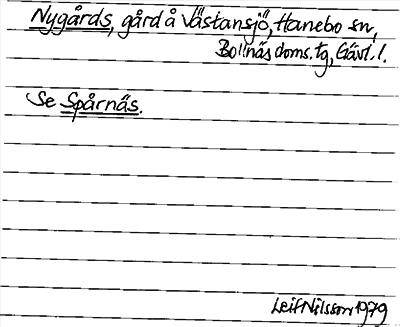 Nygårds, gård å Västansjö, Hanebo sn,
Bollnäs doms. tg, Gävl. l.
Se Spårnäs.
Leif Nilsson 1979